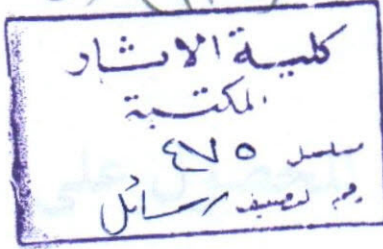 كلية الاثار
المكتبة
مسلسل ٤٧٥
رقم التصنيف رسائل